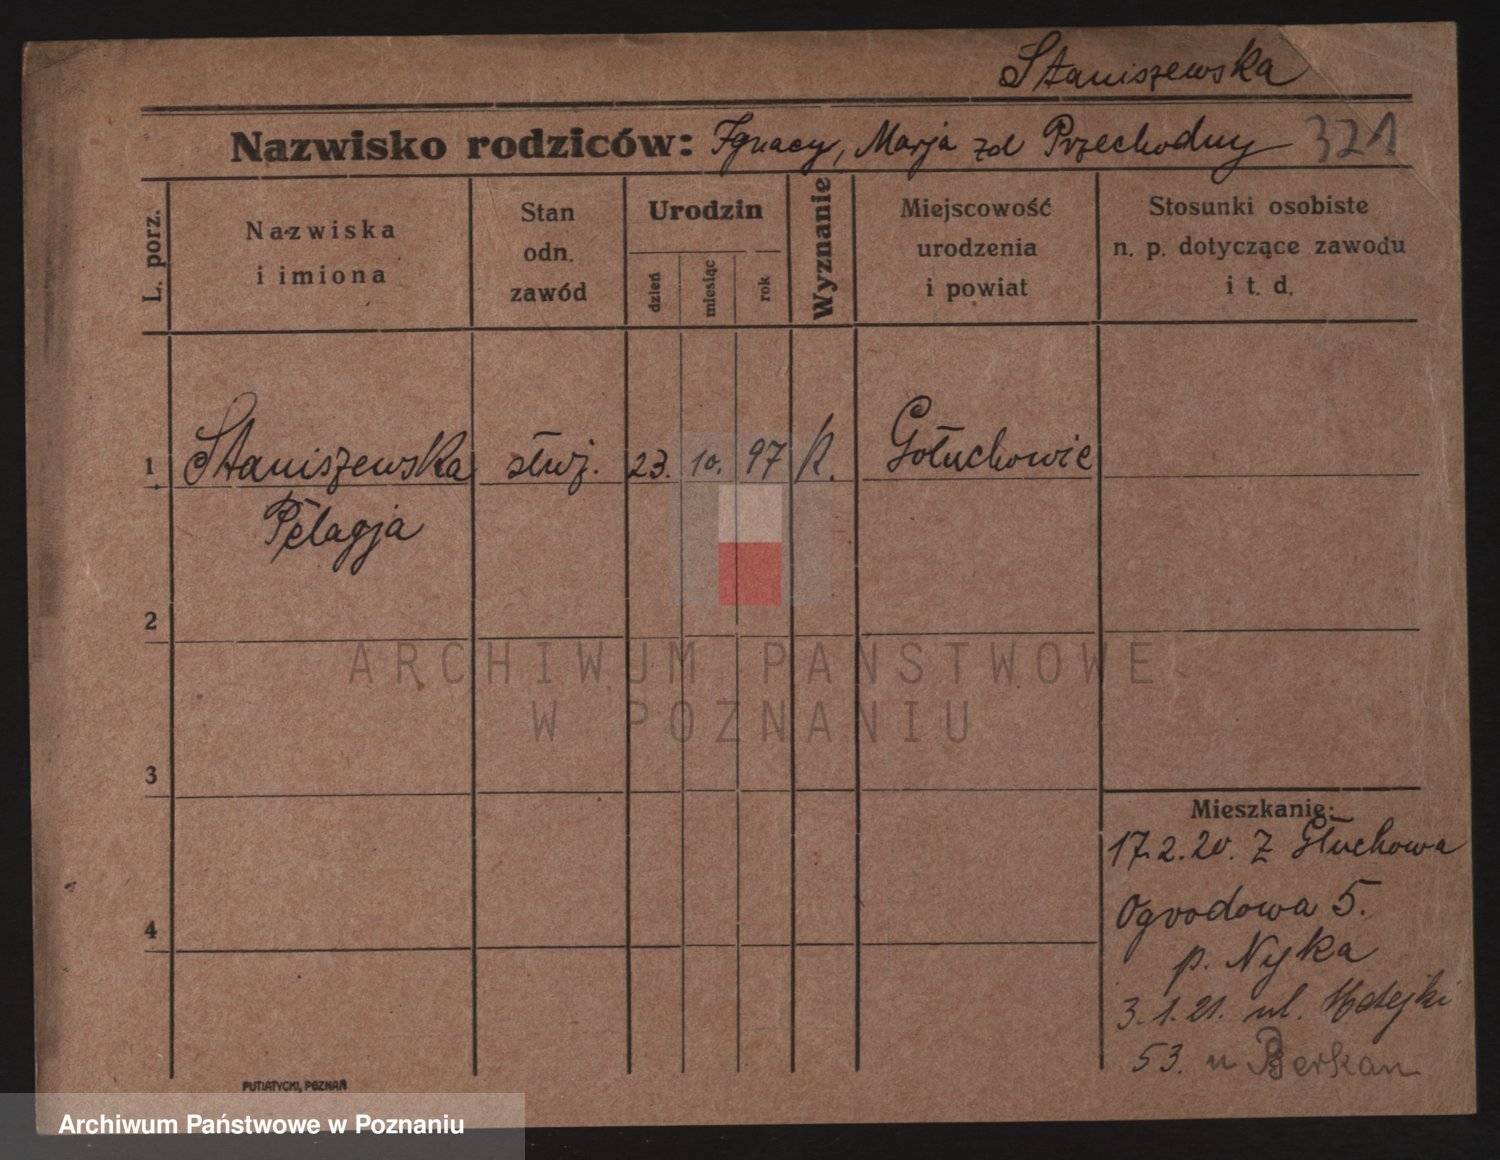 Staniszewska
Nazwisko rodziców: Ignacy, Marja zd Przechodny 321
L. porz.
Nazwiska
i imiona
Stan
odn.
zawód
Urodzin
dzień
miesiąc
rok
Wyznanie
Miejscowość
urodzenia
i powiat
Stosunki osobiste
n. p. dotyczące zawodu
i t. d.
1 Staniszewska służ. 23. 10. 97 K. Gołuchowie
Pelagja
2
3
4
Mieszkanie:
17.2.20. Z Głuchowa
Ogrodowa 5.
p. Nyka
3.1.21. ul. Matejki
53. u Berkan
PUTIATYCKI, POZNAŃ
ARCHIWUM PAŃSTWOWE
W POZNANIU
Archiwum Państwowe w Poznaniu